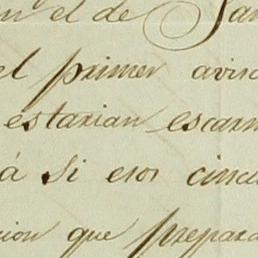 en el de San
el primer aviso
estarian escarm
á si esos cincu
cion que prepara